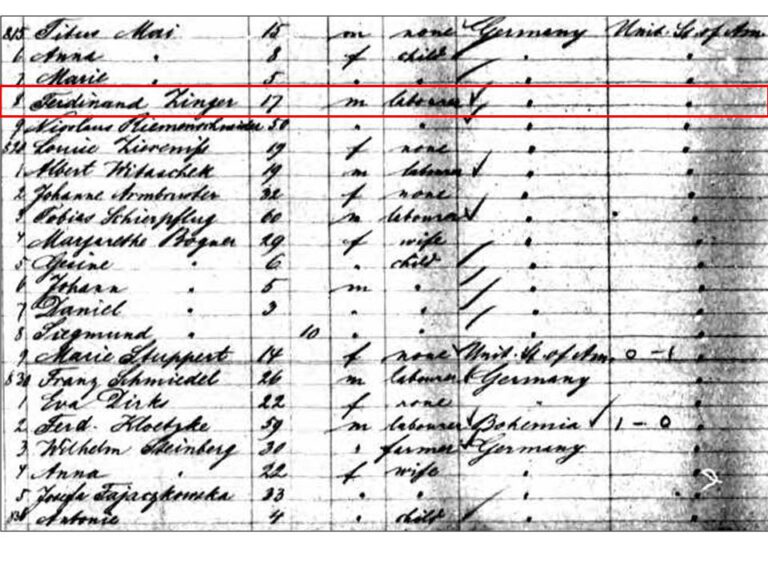 815 Titus Mai 15 m none Germany Unit. St. of Am.
6 Anna " 8 f child " "
7 Marie " 5 " " " "
8 Ferdinand Zinger 17 m labourer " "
9 Nicolaus Riemenschneider 50 " " " "
820 Louise 19 f none " "
1 Albert Witaschek 19 m labourer " "
2 Johanne Armbruster 32 f none " "
3 Tobias Schierpflug 60 m labourer " "
4 Margarethe Bogner 29 f wife " "
5 " 6 " child " "
6 Johann " 5 m " " "
7 Daniel " 3 " " " "
8 Siegmund " 10 " " " "
9 Marie Stuppert 14 f none Unit. St. of Am. 0 - 1 "
830 Franz Schmiedel 26 m labourer Germany "
1 Eva Dirks 22 f none " "
2 Ferd. Kloetzke 59 m labourer Bohemia 1 - 0 "
3 Wilhelm Steinberg 30 " farmer Germany "
4 Anna " 22 f wife " "
5 Josefa Tajaczkowska 33 " " " "
836 Antonie 4 " child " "